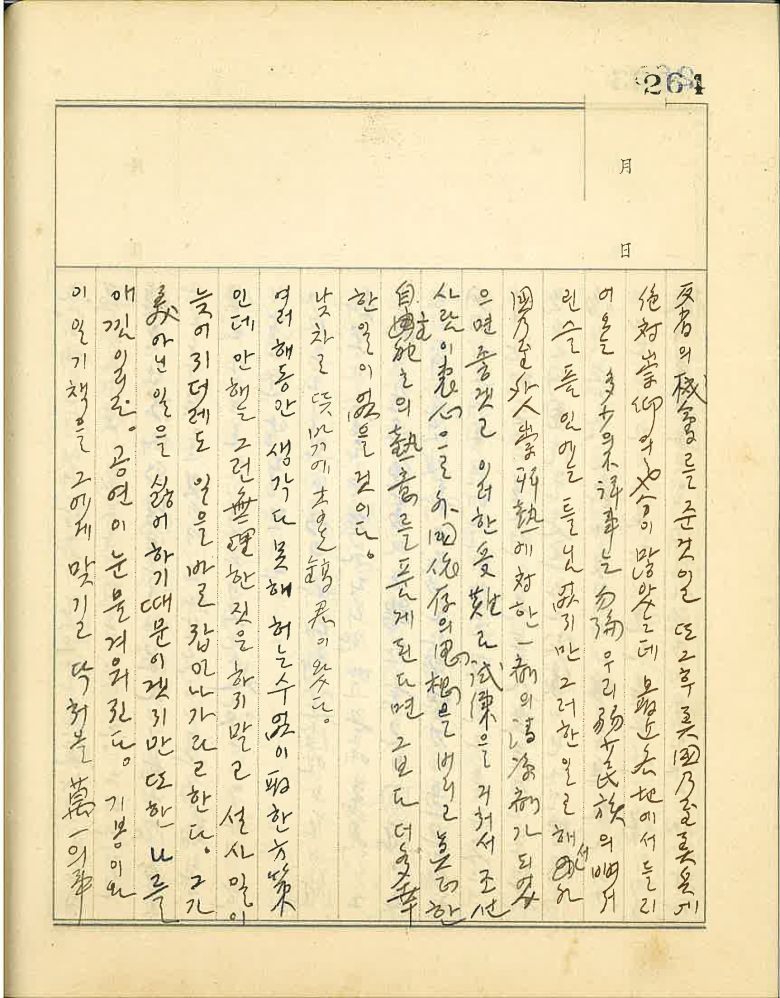 264
月
日
反省의 機會를 준것일 또그후 美國乃至 美兵에
絶対崇仰의 많았는데 最近 各地에서 들리
어오는 多少의 不祥事는 勿論 우리 弱少民族의 뼈저
린 슬픔임에는 틀님없지만 그러한일로 해서
國乃至 外人崇拜熱에 対한 一劑의 淸凉劑가 되었
으면 좋겠고 이러한 受難과 試煉을 거쳐서 조선
사람이 衷心으로 外國依存의 思想을 버리고 眞正한
自主 의 熱意를 품게된다면 그보다 더 多幸
한 일이 없을것이다.
낮차로 뜻밖에 鎬君이 왔다.
여러해동안 생각다못해 허는수없이 取한 方策
인데 안해는 그런 無理한짓은 하지말고 설사 일이
늦어지더레도 일을 바로 잡어나가라고한다. 그가
義아닌일을 싫어하기때문이겠지만 또한 나를
애낌일림. 공연이 눈물겨워진다. 기봉이와
이일기책을 그에게 맞기고 닥처올 萬一의事